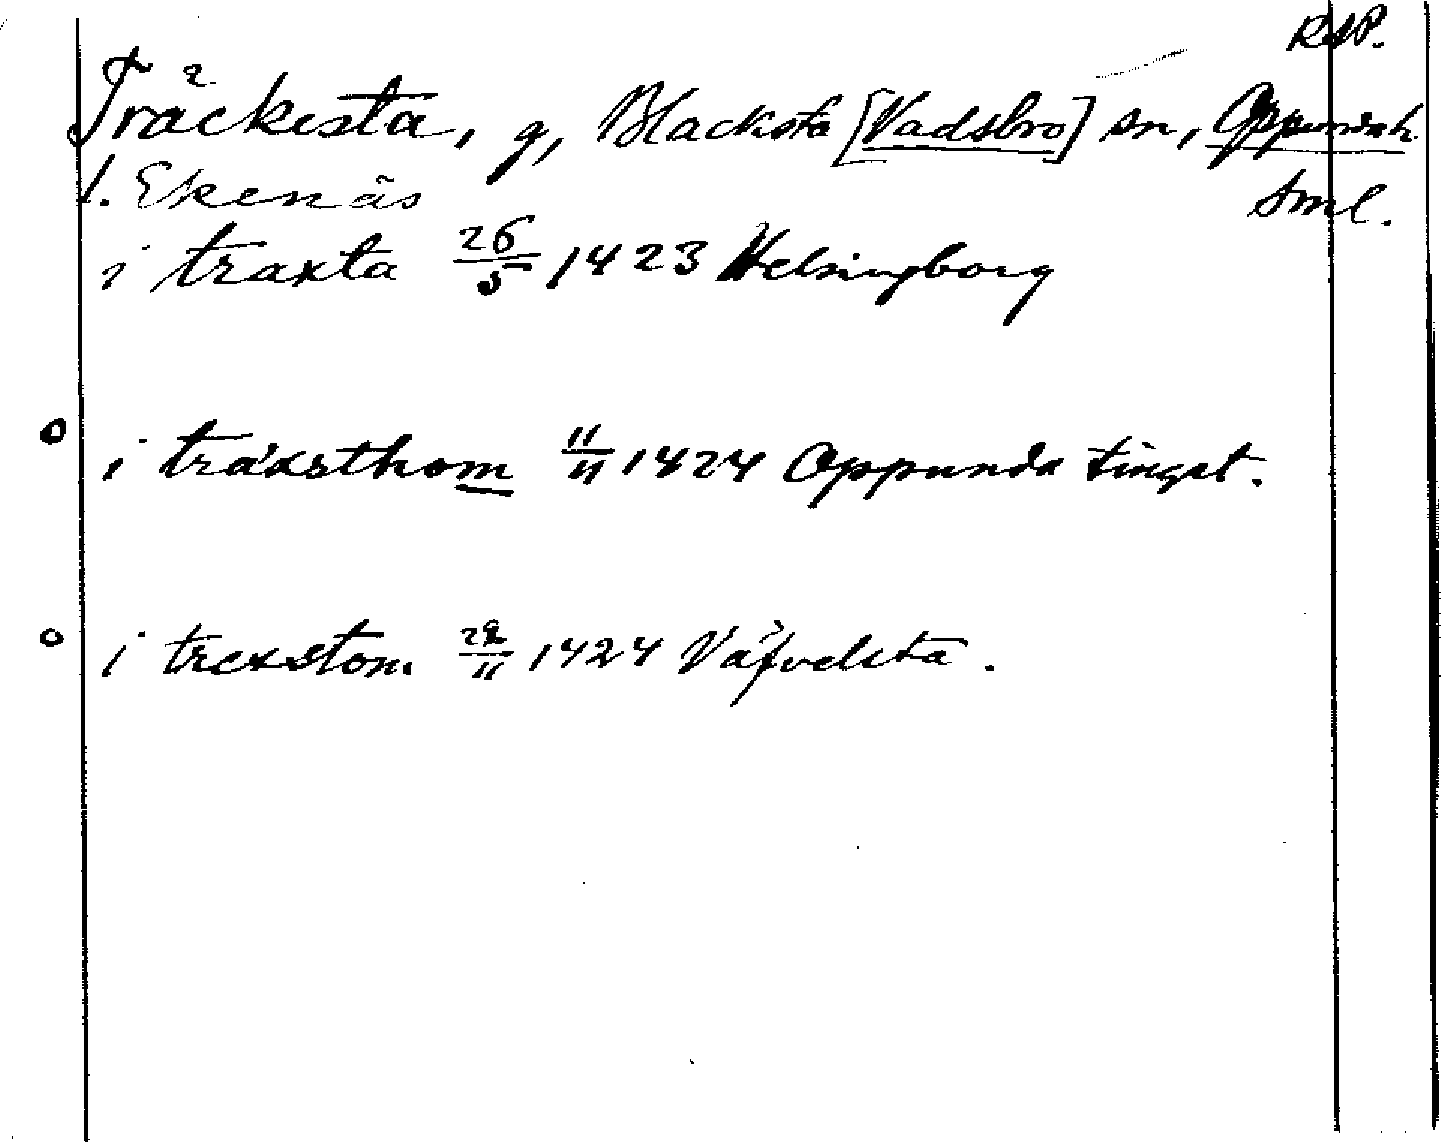 RAP.
Träckesta, g, Blacksta [Vadsbro] sn, Oppunda h.
l. Ekenäs
Sml.
i traxta 26/5 1423 Helsingborg
o i träxsthom 11/11 1424 Oppunda tingst.
o i trexstom 22/11 1424 Väfvelsta.